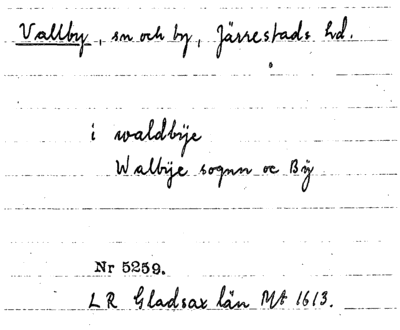 Vallby, sn och by, Järrestads hd.
i waldbÿe
Walbÿe sognn oc Bÿ
Nr 5259.
LR Gladsax län Mt 1613.